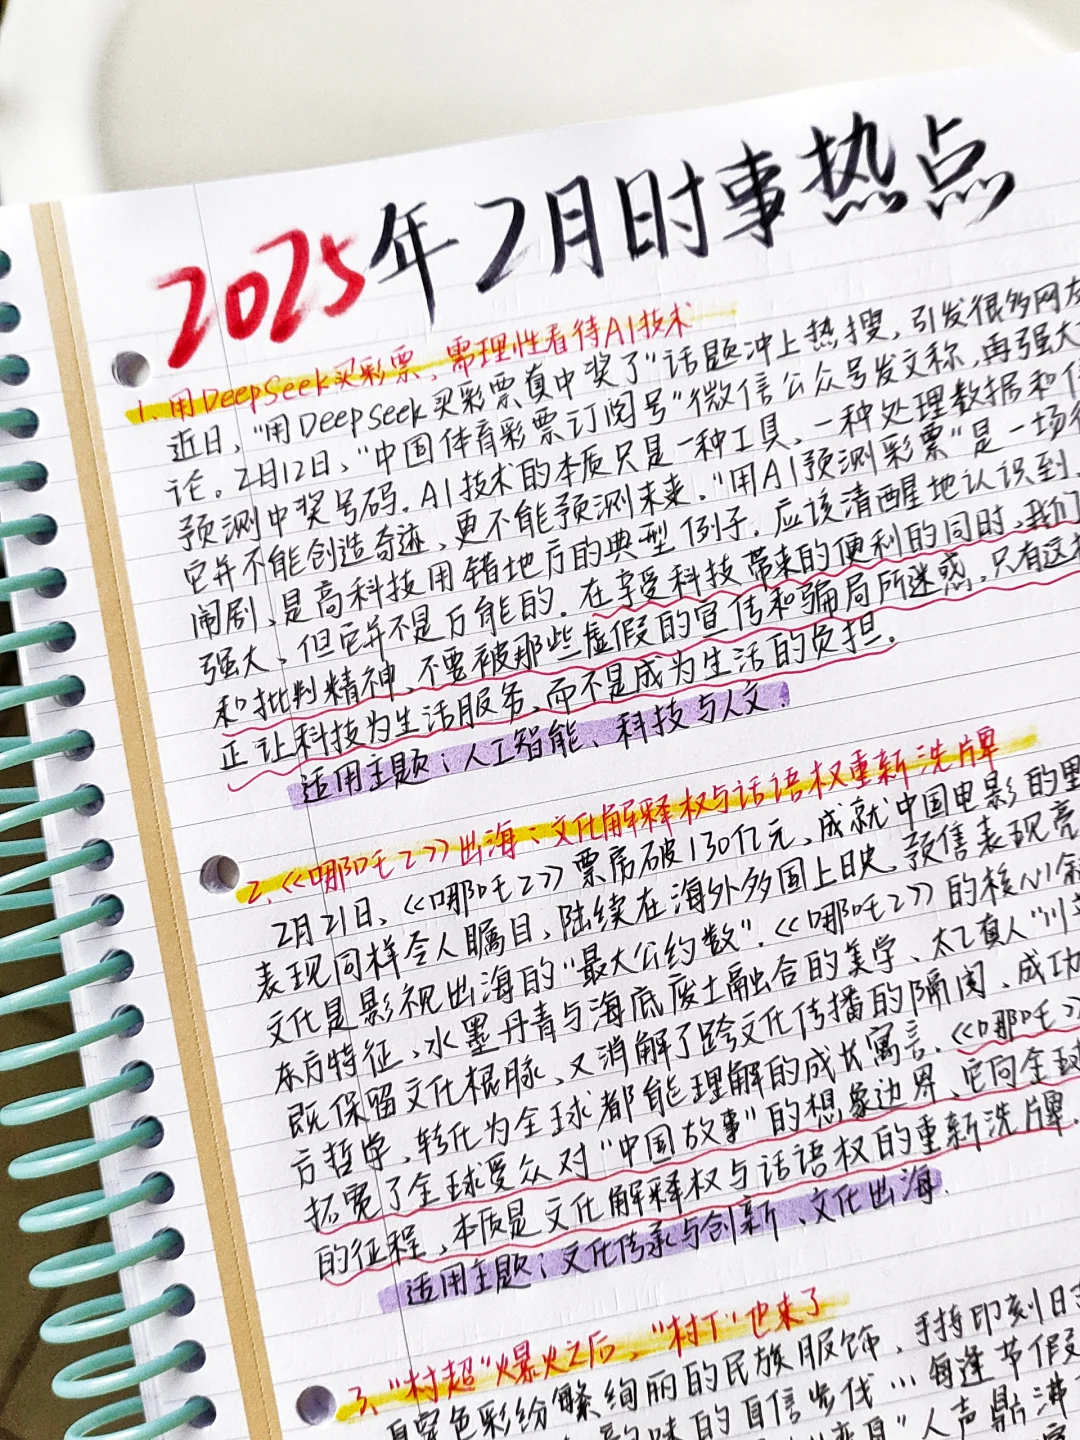 2025年2月时事热点
1、用DeepSeek买彩票，需理性看待AI技术
近日，“用DeepSeek买彩票真中奖了”话题冲上热搜，引发很多网友
论。2月12日，“中国体育彩票订阅号”微信公众号发文称，再强大
预测中奖号码。AI技术的本质只是一种工具、一种处理数据和信
它并不能创造奇迹，更不能预测未来。“用AI预测彩票”是一场
闹剧，是高科技用错地方的典型例子。应该清醒地认识到，
强大、但它并不是万能的。在享受科技带来的便利的同时，我们
和批判精神、不要被那些虚假的宣传和骗局所迷惑。只有这
正让科技为生活服务、而不是成为生活的负担。
适用主题：人工智能、科技与人文。
2、《哪吒2》出海：文化解释权与话语权重新洗牌
2月21日、《哪吒2》票房破130亿元、成就中国电影的里
表现同样令人瞩目、陆续在海外多国上映、预售表现亮
文化是影视出海的“最大公约数”。《哪吒2》的核心叙
东方特征、水墨丹青与海底废土融合的美学、太乙真人“川
既保留文化根脉、又消解了跨文化传播的隔阂、成功
方哲学、转化为全球都能理解的成长寓言。《哪吒2》
拓宽了全球受众对“中国故事”的想象边界、它向全球
的征程、本质是文化解释权与话语权的重新洗牌。
适用主题：文化传承与创新、文化出海。
3、“村超”爆火之后，“村T”也来了
色彩纷繁绚丽的民族服饰、手持印刻
韵味的自信步伐…每逢节假
”人声鼎沸